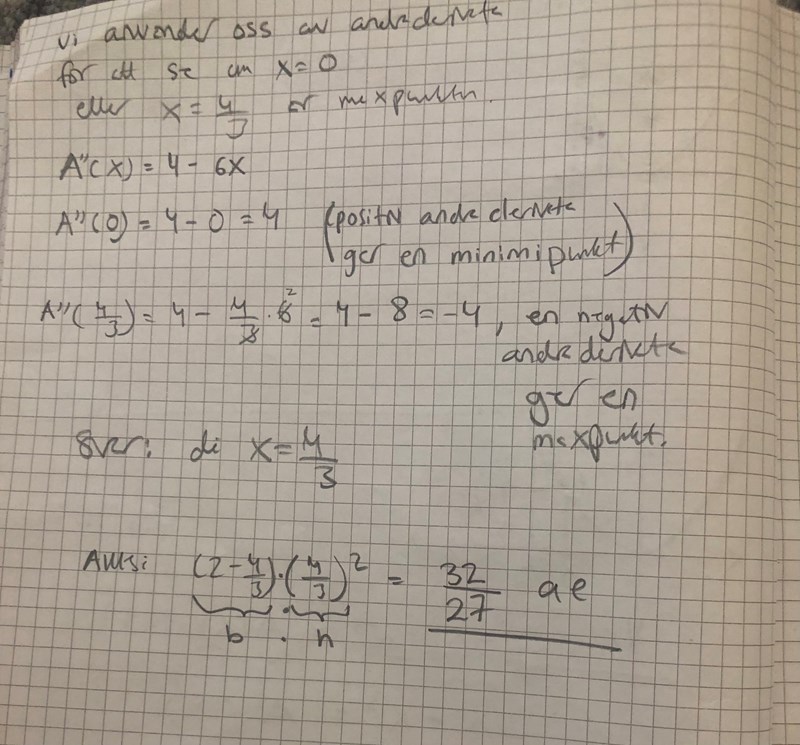 vi använder oss av andraderivata
för att se om x=0
eller x = 4/3 är maxpunkten.
A''(x) = 4 - 6x
A''(0) = 4 - 0 = 4 (positiv andra derivata
ger en minimipunkt)
A''(4/3) = 4 - 4/3 · 6² = 4 - 8 = -4, en negativ
andra derivata
ger en
maxpunkt.
Svar: då x = 4/3
(2 - 4/3) · (4/3)² = 32/27 ae
b · h